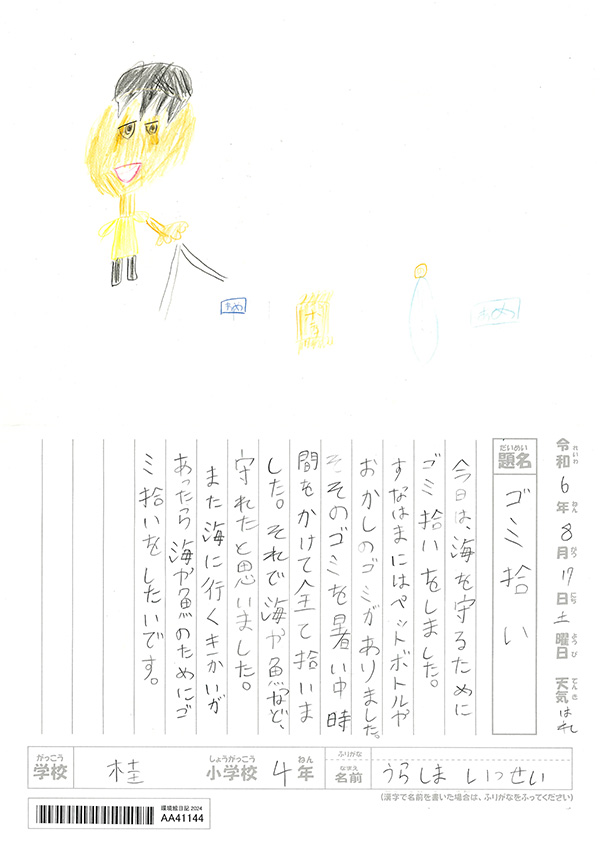 あめ
あめ
令和6年8月17日土曜日 天気はれ
れいわ ねん がつ にち ようび てんき
だいめい
題名
ゴミ拾い
今日は、海を守るために
ゴミ拾いをしました。
すなはまにはペットボトルや
おかしのゴミがありました。
そこでそのゴミを暑い中時
間をかけて全て拾いま
した。それで海や魚など、
守れたと思いました。
また海に行くきかいが
あったら海や魚のためにゴ
ミ拾いをしたいです。
がっこう しょうがっこう ねん
学校 桂 小学校 4年
ふりがな
なまえ
名前 うらしま いっせい
(漢字で名前を書いた場合は、ふりがなをふってください)
環境絵日記 2024
AA41144